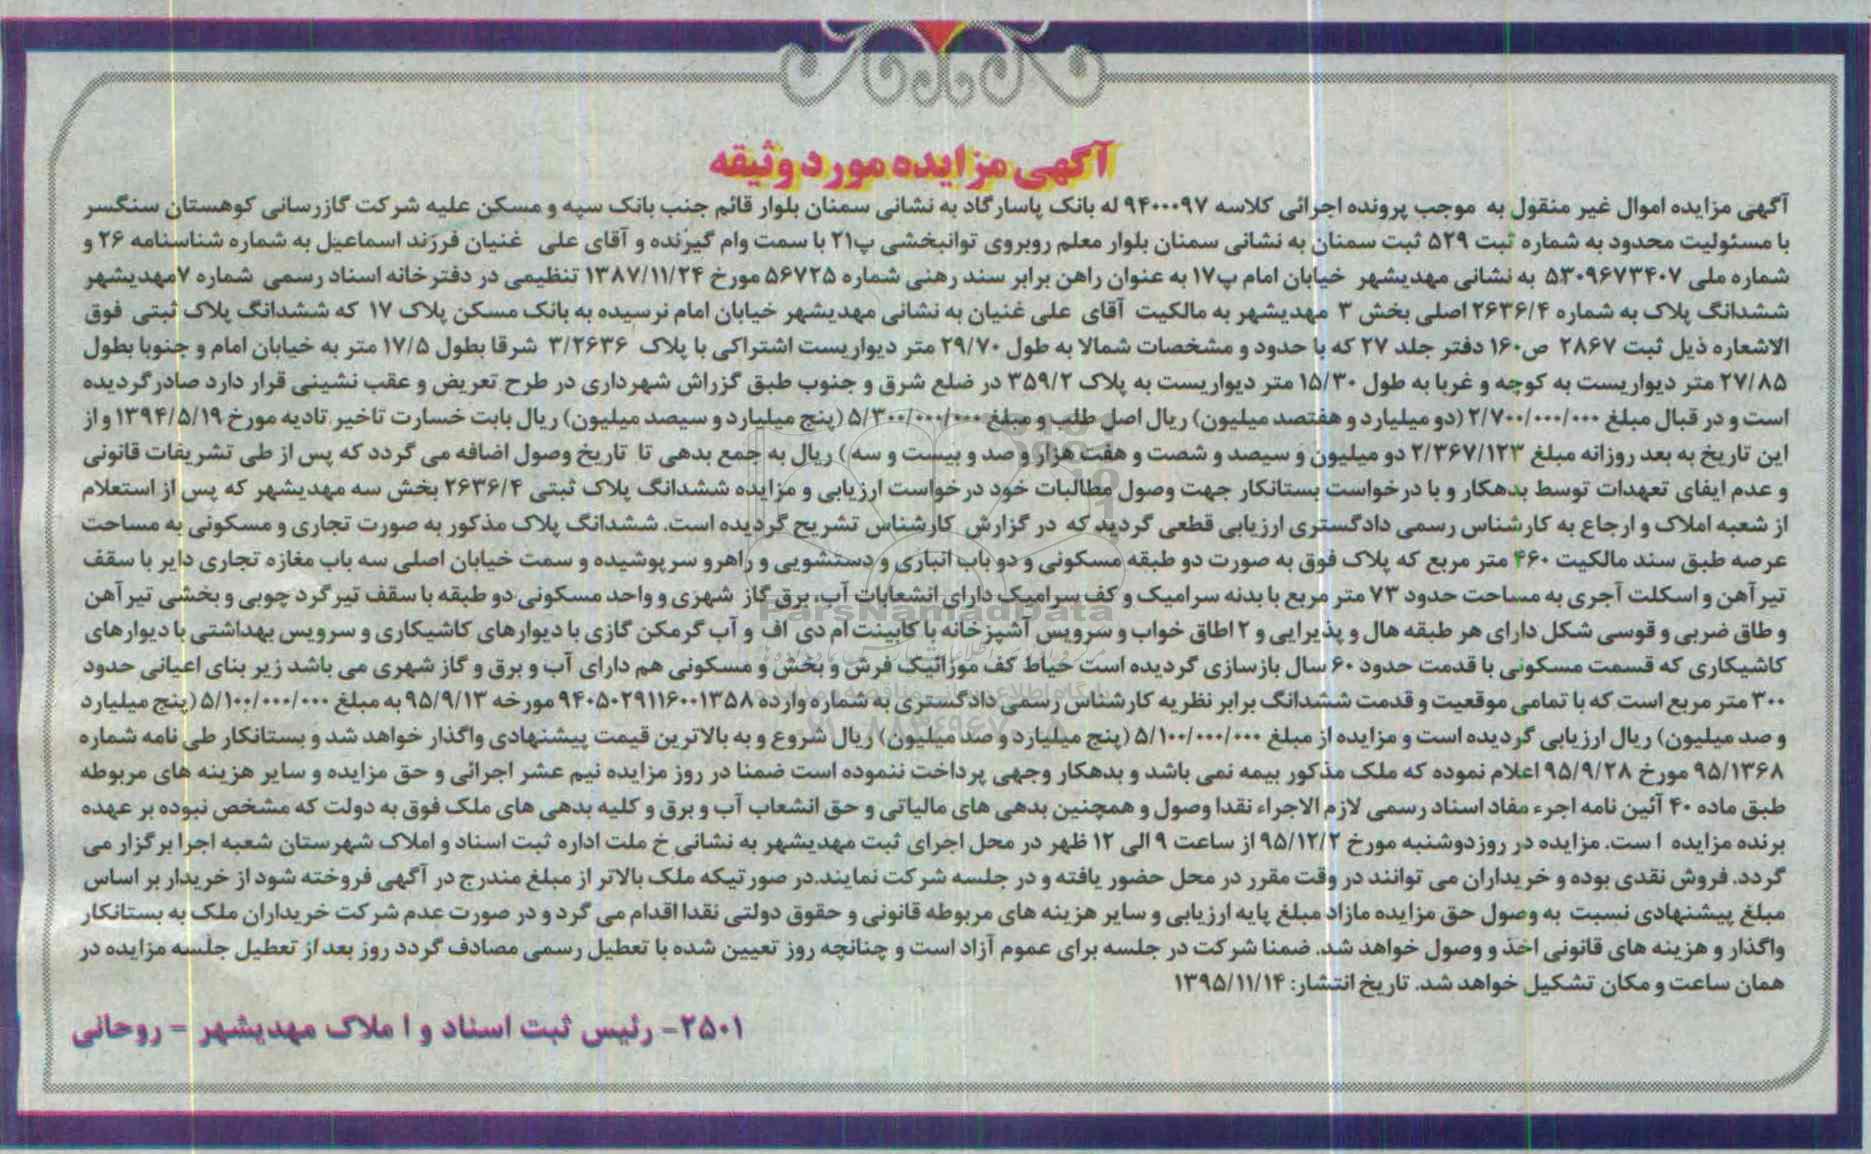 آگهی مزایده مورد وثیقه
آگهی مزایده اموال غیر منقول به موجب پرونده اجرائی کلاسه ۹۴۰۰۰۹۷ له بانک پاسارگاد به نشانی سمنان بلوار قائم جنب بانک سپه و مسکن علیه شرکت گازرسانی کوهستان سنگسر
با مسئولیت محدود به شماره ثبت ۵۲۹ ثبت سمنان به نشانی سمنان بلوار معلم روبروی توانبخشی پ۲۱ با سمت وام گیرنده و آقای علی غنیان فرزند اسماعیل به شماره شناسنامه ۲۶ و
شماره ملی ۵۳۰۹۶۷۳۴۰۷ به نشانی مهدیشهر خیابان امام پ۱۷ به عنوان راهن برابر سند رهنی شماره ۵۶۷۲۵ مورخ ۱۳۸۷/۱۱/۲۴ تنظیمی در دفترخانه اسناد رسمی شماره ۷مهدیشهر
ششدانگ پلاک به شماره ۲۶۳۶/۴ اصلی بخش ۳ مهدیشهر به مالکیت آقای علی غنیان به نشانی مهدیشهر خیابان امام نرسیده به بانک مسکن پلاک ۱۷ که ششدانگ پلاک ثبتی فوق
الاشعاره ذیل ثبت ۲۸۶۷ ص۱۶۰ دفتر جلد ۲۷ که با حدود و مشخصات شمالا به طول ۲۹/۷۰ متر دیواریست اشتراکی با پلاک ۳/۲۶۳۶ شرقا بطول ۱۷/۵ متر به خیابان امام و جنوبا بطول
۲۷/۸۵ متر دیواریست به کوچه و غربا به طول ۱۵/۳۰ متر دیواریست به پلاک ۳۵۹/۲ در ضلع شرق و جنوب طبق گزراش شهرداری در طرح تعریض و عقب نشینی قرار دارد صادر گردیده
است و در قبال مبلغ ۲/۷۰۰/۰۰۰/۰۰۰ (دو میلیارد و هفتصد میلیون) ریال اصل طلب و مبلغ ۵/۳۰۰/۰۰۰/۰۰۰ (پنج میلیارد و سیصد میلیون) ریال بابت خسارت تاخیر تادیه مورخ ۱۳۹۴/۵/۱۹ و از
این تاریخ به بعد روزانه مبلغ ۲/۳۶۷/۱۲۳ دو میلیون و سیصد و شصت و هفت هزار و صد و بیست و سه ) ریال به جمع بدهی تا تاریخ وصول اضافه می گردد که پس از طی تشریفات قانونی
و عدم ایفای تعهدات توسط بدهکار و با درخواست بستانکار جهت وصول مطالبات خود درخواست ارزیابی و مزایده ششدانگ پلاک ثبتی ۲۶۳۶/۴ بخش سه مهدیشهر که پس از استعلام
از شعبه املاک و ارجاع به کارشناس رسمی دادگستری ارزیابی قطعی گردید که در گزارش کارشناس تشریح گردیده است. ششدانگ پلاک مذکور به صورت تجاری و مسکونی به مساحت
عرصه طبق سند مالکیت ۴۶۰ متر مربع که پلاک فوق به صورت دو طبقه مسکونی و دو باب انباری و دستشویی و راهرو سرپوشیده و سمت خیابان اصلی سه باب مغازه تجاری دایر با سقف
تیرآهن و اسکلت آجری به مساحت حدود ۷۳ متر مربع با بدنه سرامیک و کف سرامیک دارای انشعابات آب، برق گاز شهری و واحد مسکونی دو طبقه با سقف تیر گرد چوبی و بخشی تیرآهن
و طاق ضربی و قوسی شکل دارای هر طبقه هال و پذیرایی و ۲ اطاق خواب و سرویس آشپزخانه با کابینت ام دی اف و آب گرمکن گازی با دیوارهای کاشیکاری و سرویس بهداشتی با دیوارهای
کاشیکاری که قسمت مسکونی با قدمت حدود ۶۰ سال بازسازی گردیده است حیاط کف موزائیک فرش و بخش و مسکونی هم دارای آب و برق و گاز شهری می باشد زیر بنای اعیانی حدود
۳۰۰ متر مربع است که با تمامی موقعیت و قدمت ششدانگ برابر نظریه کارشناس رسمی دادگستری به شماره وارده ۹۴۰۵۰۲۹۱۱۶۰۰۱۳۵۸ مورخه ۹۵/۹/۱۳ به مبلغ ۵/۱۰۰/۰۰۰/۰۰۰ (پنج میلیارد
و صد میلیون) ریال ارزیابی گردیده است و مزایده از مبلغ ۵/۱۰۰/۰۰۰/۰۰۰ (پنج میلیارد و صد میلیون) ریال شروع و به بالاترین قیمت پیشنهادی واگذار خواهد شد و بستانکار طی نامه شماره
۹۵/۱۳۶۸ مورخ ۹۵/۹/۲۸ اعلام نموده که ملک مذکور بیمه نمی باشد و بدهکار وجهی پرداخت ننموده است ضمنا در روز مزایده نیم عشر اجرائی و حق مزایده و سایر هزینه های مربوطه
طبق ماده ۴۰ آئین نامه اجرء مفاد اسناد رسمی لازم الاجراء نقدا وصول و همچنین بدهی های مالیاتی و حق انشعاب آب و برق و کلیه بدهی های ملک فوق به دولت که مشخص نبوده بر عهده
برنده مزایده است. مزایده در روز دوشنبه مورخ ۹۵/۱۲/۲ از ساعت ۹ الی ۱۲ ظهر در محل اجرای ثبت مهدیشهر به نشانی خ ملت اداره ثبت اسناد و املاک شهرستان شعبه اجرا برگزار می
گردد. فروش نقدی بوده و خریداران می توانند در وقت مقرر در محل حضور یافته و در جلسه شرکت نمایند.در صورتیکه ملک بالاتر از مبلغ مندرج در آگهی فروخته شود از خریدار بر اساس
مبلغ پیشنهادی نسبت به وصول حق مزایده مازاد مبلغ پایه ارزیابی و سایر هزینه های مربوطه قانونی و حقوق دولتی نقدا اقدام می گرد و در صورت عدم شرکت خریداران ملک به بستانکار
واگذار و هزینه های قانونی اخذ و وصول خواهد شد. ضمنا شرکت در جلسه برای عموم آزاد است و چنانچه روز تعیین شده با تعطیل رسمی مصادف گردد روز بعد از تعطیل جلسه مزایده در
همان ساعت و مکان تشکیل خواهد شد. تاریخ انتشار: ۱۳۹۵/۱۱/۱۴
۲۵۰۱- رئیس ثبت اسناد و املاک مهدیشهر - روحانی
ParsNamadData